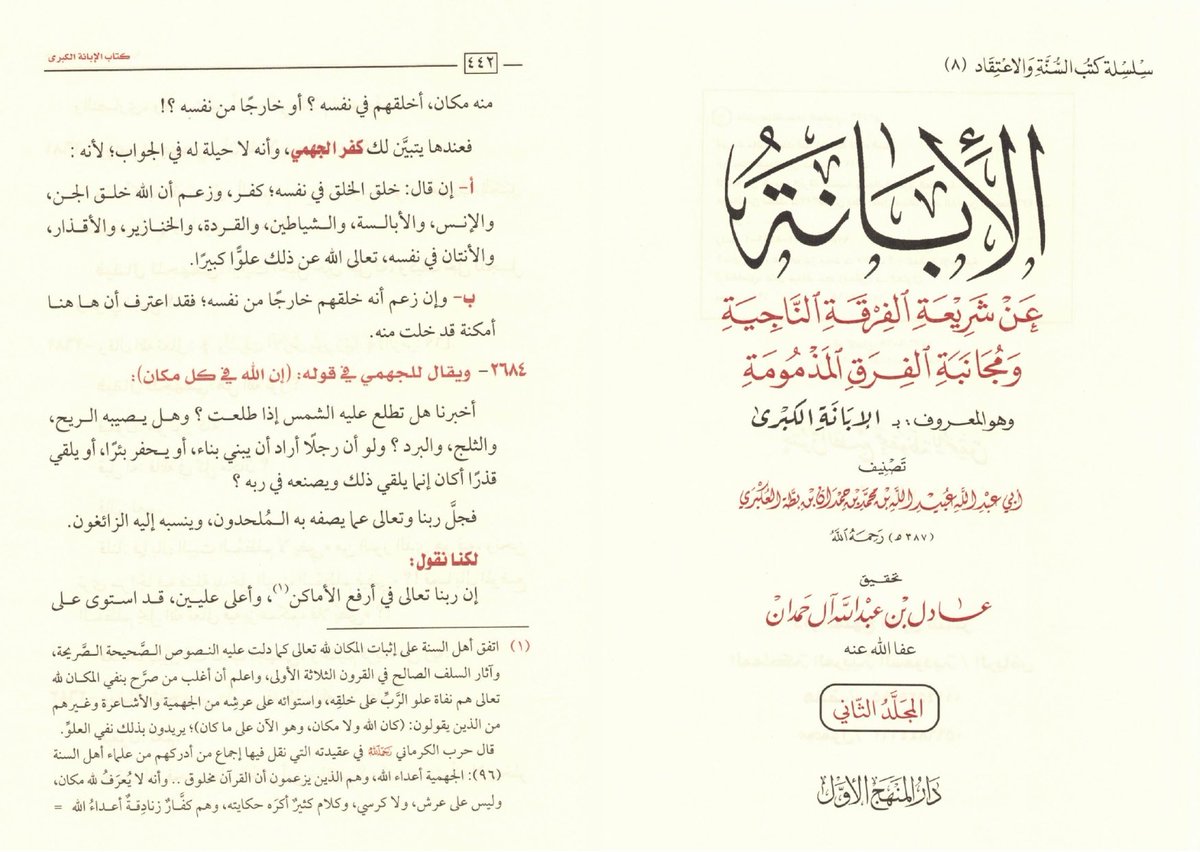 سِلْسِلة كتُب السُّنَّةِ وَالاعْتِقَاد (٨)
الإِبَانَةُ
عَنْ شَرِيْعَةِ الْفِرْقَةِ النَّاجِيَةِ
وَمُجَانَبَةِ الْفِرَقِ الْمَذْمُومَةِ
وهو المعروف: بـ الإبانَةِ الكبْرىٰ
تَصْنِيف
أبي عبد الله عُبيد الله بن محمَّد بن حَمْدَان بن بطّة العُكْبَري
(٣٨٧ هـ) رَحِمَهُ اللهُ
تحقيق
عادل بن عبد الله آل حَمدان
عفا الله عنه
المجلَّدُ الثّاني
دَارُ المَنهَج الأوّل
كتاب الإبانة الكبرى
٤٤٢
منه مكان، أخلقهم في نفسه؟ أو خارجًا من نفسه؟!
فعندها يتبيَّن لك كفر الجهمي، وأنه لا حيلة له في الجواب؛ لأنه:
أ- إن قال: خلق الخلق في نفسه؛ كفر، وزعم أن الله خلق الجن،
والإنس، والأبالسة، والشياطين، والقردة، والخنازير، والأقذار،
والأنتان في نفسه، تعالى الله عن ذلك علوًّا كبيرًا.
ب- وإن زعم أنه خلقهم خارجًا من نفسه؛ فقد اعترف أن ها هنا
أمكنة قد خلت منه.
٢٦٨٤- ويقال للجهمي في قوله: (إن الله في كل مكان):
أخبرنا هل تطلع عليه الشمس إذا طلعت؟ وهل يصيبه الريح،
والثلج، والبرد؟ ولو أن رجلًا أراد أن يبني بناء، أو يحفر بئرًا، أو يلقي
قذرًا أكان إنما يلقي ذلك ويصنعه في ربه؟
فجلَّ ربنا وتعالى عما يصفه به المُلحدون، وينسبه إليه الزائغون.
لكنا نقول:
إن ربنا تعالى في أرفع الأماكن(١)، وأعلى عليين، قد استوى على
(١) اتفق أهل السنة على إثبات المكان لله تعالى كما دلت عليه النصوص الصَّحيحة الصَّريحة،
وآثار السلف الصالح في القرون الثلاثة الأولى، واعلم أن أغلب من صرَّح بنفي المكان لله
تعالى هم نفاة علو الرَّبِّ على خلقِه، واستوائه على عرشِه من الجهمية والأشاعرة وغيرهم
من الذين يقولون: (كان الله ولا مكان، وهو الآن على ما كان)؛ يريدون بذلك نفي العلوِّ.
قال حرب الكرماني رَحِمَهُ اللهُ في عقيدته التي نقل فيها إجماع من أدركهم من علماء أهل السنة
(٩٦): الجهمية أعداء الله، وهم الذين يزعمون أن القرآن مخلوق .. وأنه لا يُعرَفُ لله مكان،
وليس على عرش، ولا كرسي، وكلام كثيرٌ أكرَه حكايته، وهم كفَّارٌ زنادِقةٌ أعداءُ الله =